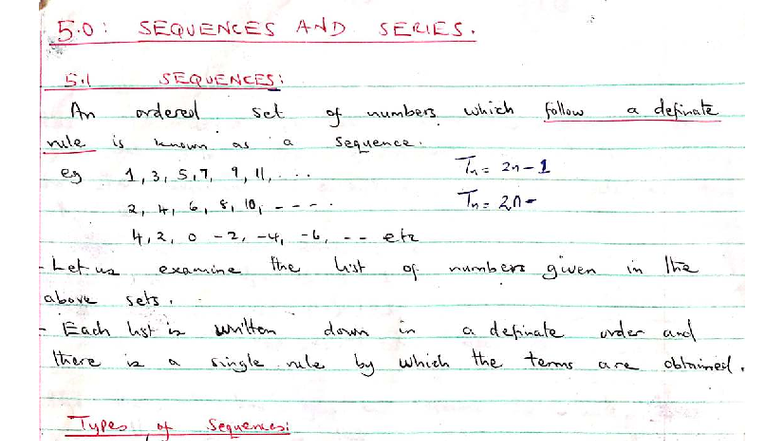 5.0: SEQUENCES AND SERIES.
5.1 SEQUENCES:
An ordered set of numbers which follow a definate
rule is known as a sequence.
eg 1, 3, 5, 7, 9, 11, . . . Tn = 2n - 1
2, 4, 6, 8, 10, - - - - Tn = 2n -
4, 2, 0 -2, -4, -6, - - etc
- Let us examine the list of numbers given in the
above sets.
- Each list is written down in a definate order and
there is a single rule by which the terms are obtained.
Types of sequences: